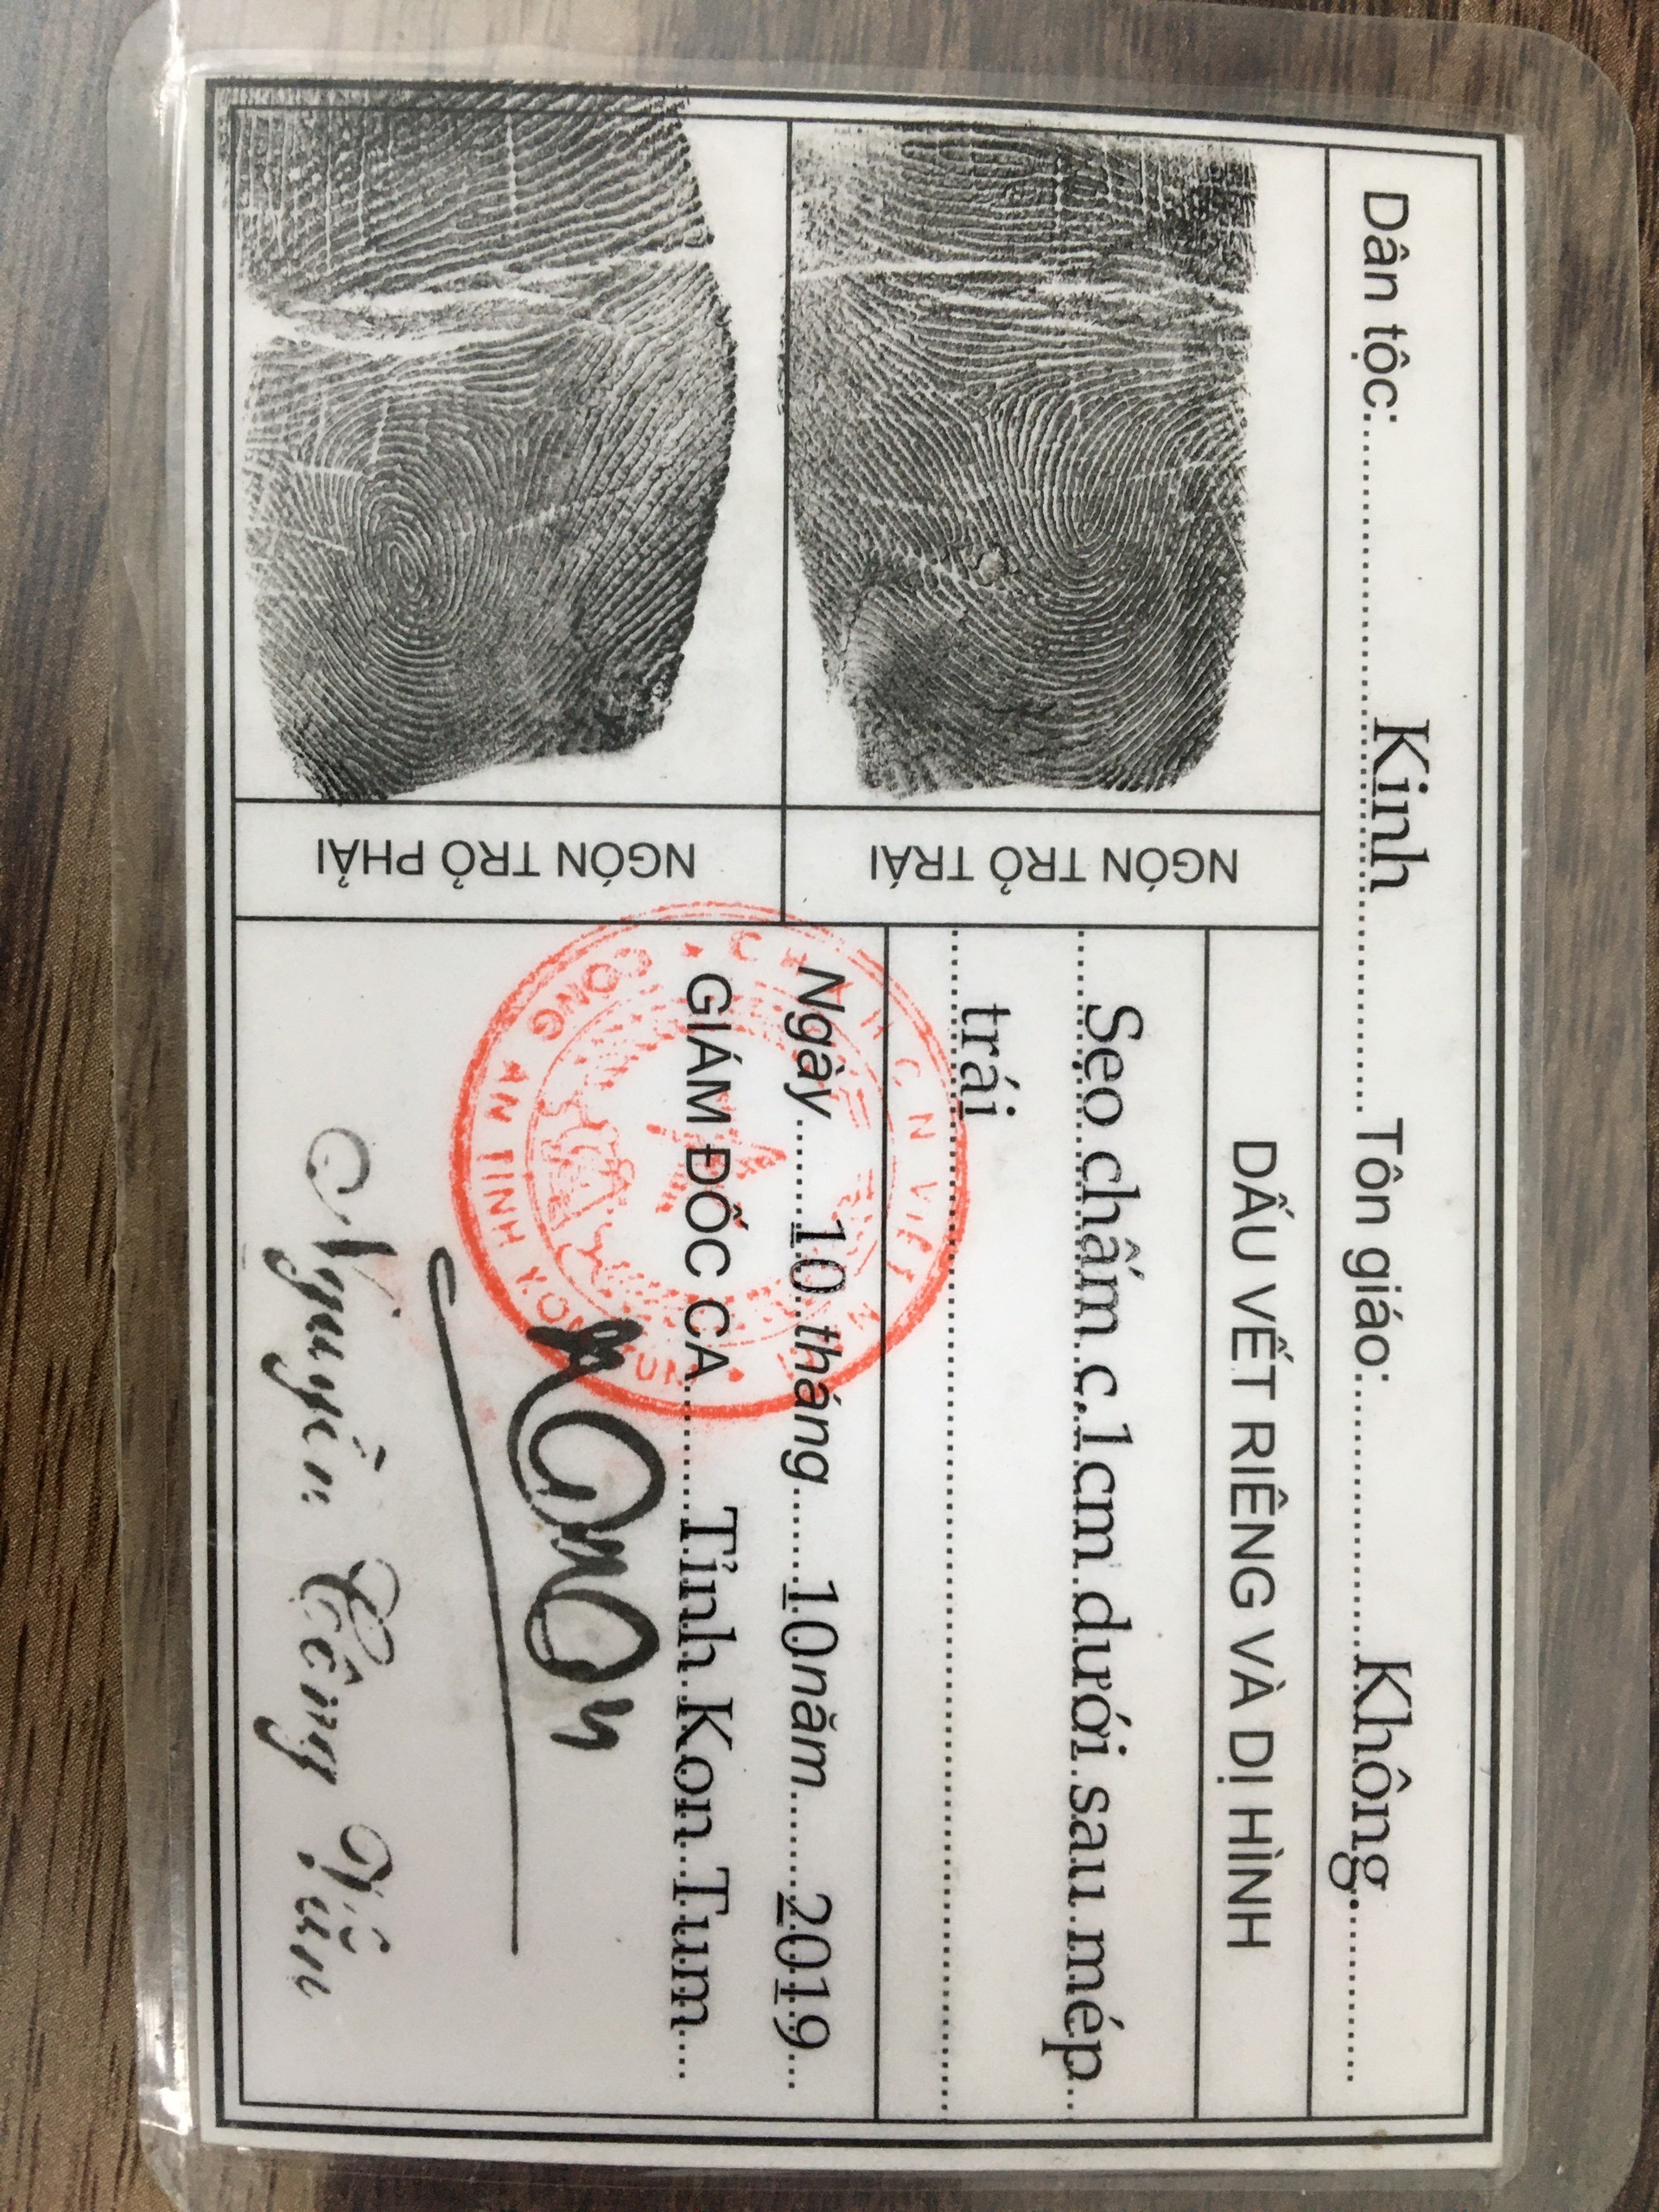 Dân tộc: Kinh Tôn giáo: Không
NGÓN TRỎ TRÁI
NGÓN TRỎ PHẢI
DẤU VẾT RIÊNG VÀ DỊ HÌNH
Sẹo chấm c.1cm dưới sau mép
trái
Ngày 10 tháng 10 năm 2019
GIÁM ĐỐC CA Tỉnh Kon Tum
CÔNG AN TỈNH KON TUM
Nguyễn Công Văn